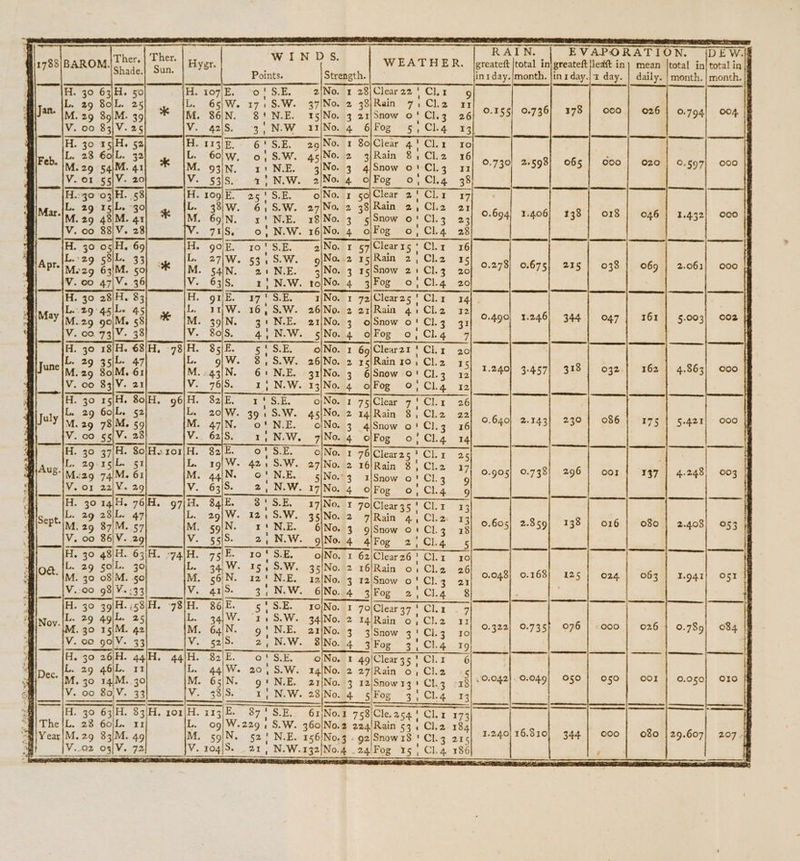 1788 BAROM. Ther. Shade. Ther. Sun. Hygr. WINDS. Points. Strength. WEATHER. RAIN. greateſt in 1 day. total in month. EVAPORATION. greateſt in 1 day. leaſt in 1 day. mean daily. total in month. DEW. total in month.
Jan. H. 30 63 H. 50 H. 107 E. 0 S.E. 2 No. 1 28 Clear 22 Cl.1 9
L. 29 80 L. 25 L. 65 W. 17 S.W. 37 No. 2 38 Rain 7 Cl.2 11
M. 29 89 M. 39 * M. 86 N. 8 N.E. 15 No. 3 21 Snow 0 Cl.3 26 0.155 0.736 178 000 026 0.794 004
V. 00 83 V. 25 V. 42 S. 3 N.W 11 No. 4 6 Fog 5 Cl.4 13
Feb. H. 30 15 H. 52 H. 113 E. 6 S.E. 29 No. 1 80 Clear 4 Cl.1 10
L. 28 60 L. 32 L. 60 W. 0 S.W. 45 No. 2 3 Rain 8 Cl.2 16
M. 29 54 M. 41 * M. 93 N. 1 N.E. 3 No. 3 4 Snow 0 Cl.3 11 0.730 2.598 065 000 020 0.597 000
V. 01 55 V. 20 V. 53 S. 1 N.W. 2 No. 4 0 Fog 0 Cl.4 38
Mar. H. 30 03 H. 58 H. 109 E. 25 S.E. 0 No. 1 50 Clear 2 Cl.1 17
L. 29 15 L. 30 L. 38 W. 6 S.W. 27 No. 2 38 Rain 2 Cl.2 21
M. 29 48 M. 41 * M. 69 N. 1 N.E. 18 No. 3 5 Snow 0 Cl.3 23 0.694 1.406 138 018 046 1.432 000
V. 00 88 V. 28 V. 71 S. 0 N.W. 16 No. 4 0 Fog 0 Cl.4 28
Apr. H. 30 05 H. 69 H. 90 E. 10 S.E. 2 No. 1 57 Clear 15 Cl.1 16
L. 29 58 L. 33 L. 27 W. 53 S.W. 9 No. 2 15 Rain 2 Cl.2 15
M. 29 63 M. 50 * M. 54 N. 2 N.E. 3 No. 3 15 Snow 2 Cl.3 20 0.278 0.675 215 038 069 2.061 000
V. 00 47 V. 36 V. 63 S. 1 N.W. 10 No. 4 3 Fog 0 Cl.4 20
May H. 30 28 H. 83 H. 91 E. 17 S.E. 1 No. 1 72 Clear 25 Cl.1 14
L. 29 45 L. 45 L. 11 W. 16 S.W. 26 No. 2 21 Rain 4 Cl.2 12
M. 29 90 M. 58 * M. 39 N. 3 N.E. 21 No. 3 0 Snow 0 Cl.3 31 0.490 1.246 344 047 161 5.003 002
V. 00 73 V. 38 V. 80 S. 4 N.W. 5 No. 4 0 Fog 0 Cl.4 7
June H. 30 18 H. 68 H. 78 H. 85 E. 5 S.E. 0 No. 1 69 Clear 21 Cl.1 20
L. 29 35 L. 47 L. 9 W. 8 S.W. 26 No. 2 15 Rain 10 Cl.2 15
M. 29 80 M. 61 M. 43 N. 6 N.E. 31 No. 3 6 Snow 0 Cl.3 12 1.240 3.457 318 032 162 4.863 000
V. 00 83 V. 21 V. 76 S. 1 N.W. 13 No. 4 0 Fog 0 Cl.4 12
July H. 30 15 H. 80 H. 96 H. 82 E. 1 S.E. 0 No. 1 75 Clear 7 Cl.1 26
L. 29 60 L. 52 L. 20 W. 39 S.W. 45 No. 2 14 Rain 8 Cl.2 22
M. 29 78 M. 59 M. 47 N. 0 N.E. 0 No. 3 4 Snow 0 Cl.3 16 0.640 2.143 230 086 175 5.421 000
V. 00 55 V. 28 V. 62 S. 1 N.W. 7 No. 4 0 Fog 0 Cl.4 14
Aug. H. 30 37 H. 80 H. 101 H. 82 E. 0 S.E. 0 No. 1 76 Clear 25 Cl.1 25
L. 29 15 L. 51 L. 19 W. 42 S.W. 27 No. 2 16 Rain 8 Cl.2 17
M. 29 74 M. 61 M. 44 N. 0 N.E. 5 No. 3 1 Snow 0 Cl.3 9 0.905 0.738 296 001 137 4.248 003
V. 01 22 V. 29 V. 63 S. 2 N.W. 17 No. 4 0 Fog 0 Cl.4 9
Sept. H. 30 14 H. 76 H. 97 H. 84 E. 8 S.E. 17 No. 1 70 Clear 35 Cl.1 13
L. 29 28 L. 47 L. 29 W. 12 S.W. 35 No. 2 7 Rain 4 Cl.2 13
M. 29 87 M. 57 M. 59 N. 1 N.E. 6 No. 3 9 Snow 0 Cl.3 18 0.605 2.859 138 016 080 2.408 053
V. 00 86 V. 29 V. 55 S. 2 N.W. 9 No. 4 4 Fog 2 Cl.4 5
Oct. H. 30 48 H. 63 H. 74 H. 75 E. 10 S.E. 0 No. 1 62 Clear 26 Cl.1 10
L. 29 50 L. 30 L. 34 W. 15 S.W. 35 No. 2 16 Rain 0 Cl.2 26
M. 30 08 M. 50 M. 56 N. 12 N.E. 12 No. 3 12 Snow 0 Cl.3 21 0.048 0.168 125 024 063 1.941 051
V. 00 98 V. 33 V. 41 S. 3 N.W. 6 No. 4 3 Fog 2 Cl.4 8
Nov. H. 30 39 H. 58 H. 78 H. 86 E. 5 S.E. 10 No. 1 70 Clear 37 Cl.1 7
L. 29 49 L. 25 L. 34 W. 1 S.W. 34 No. 2 14 Rain 0 Cl.2 11
M. 30 15 M. 42 M. 64 N. 9 N.E. 21 No. 3 3 Snow 3 Cl.3 10 0.322 0.735 076 000 026 0.789 084
V. 00 90 V. 33 V. 52 S. 2 N.W. 8 No. 4 3 Fog 3 Cl.4 19
Dec. H. 30 26 H. 44 H. 44 H. 82 E. 0 S.E. 0 No. 1 49 Clear 35 Cl.1 6
L. 29 46 L. 11 L. 44 W. 20 S.W. 14 No. 2 27 Rain 0 Cl.2 5
M. 30 14 M. 30 M. 63 N. 9 N.E. 21 No. 3 12 Snow 13 Cl.3 18 0.042 0.049 050 050 001 0.050 010
V. 00 80 V. 33 V. 38 S. 1 N.W. 28 No. 4 5 Fog 3 Cl.4 13
The Year H. 30 63 H. 83 H. 101 H. 113 E. 87 S.E. 61 No.1 758 Cle. 254 Cl.1 173
L. 28 60 L. 11 L. 09 W. 229 S.W. 360 No.2 224 Rain 53 Cl.2 184
M. 29 83 M. 49 M. 59 N. 52 N.E. 156 No.3 92 Snow 18 Cl.3 215 1.240 16.810 344 000 080 29.607 207
V. 02 03 V. 72 V. 104 S. 21 N.W. 132 No.4 24 Fog 15 Cl.4 186